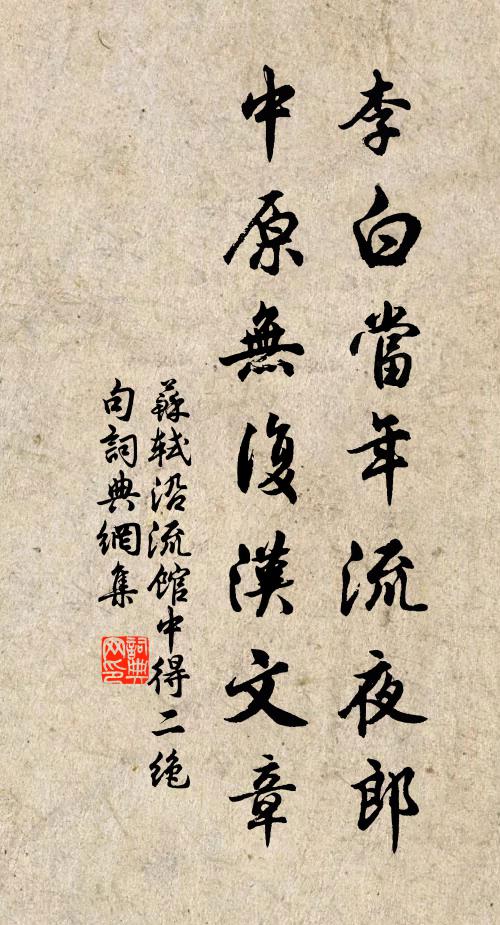 李白當年流夜郎
中原無復漢文章
蘇軾沿流館中得二絶
句詞典網集
詞典
网印